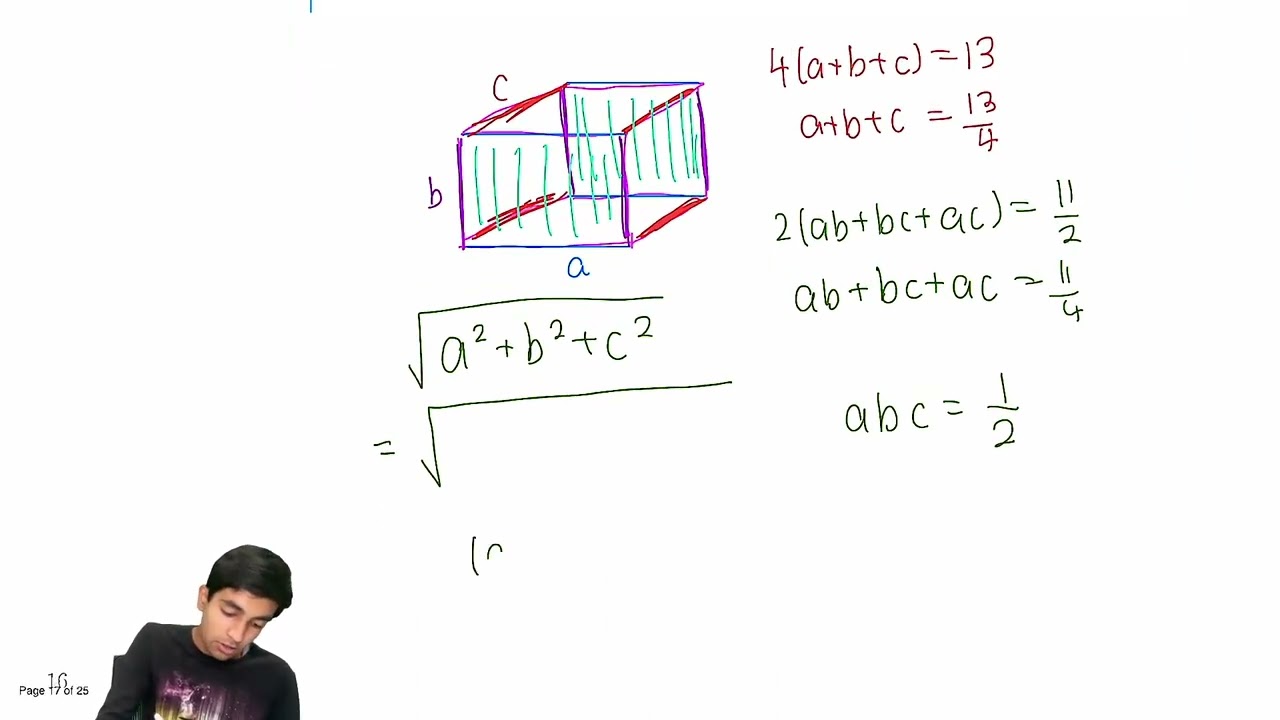 c
b
a
4(a+b+c)=13
a+b+c = 13/4
2(ab+bc+ac) = 11/2
ab+bc+ac = 11/4
√a²+b²+c²
= √
abc = 1/2
(
Page 17 of 25
16